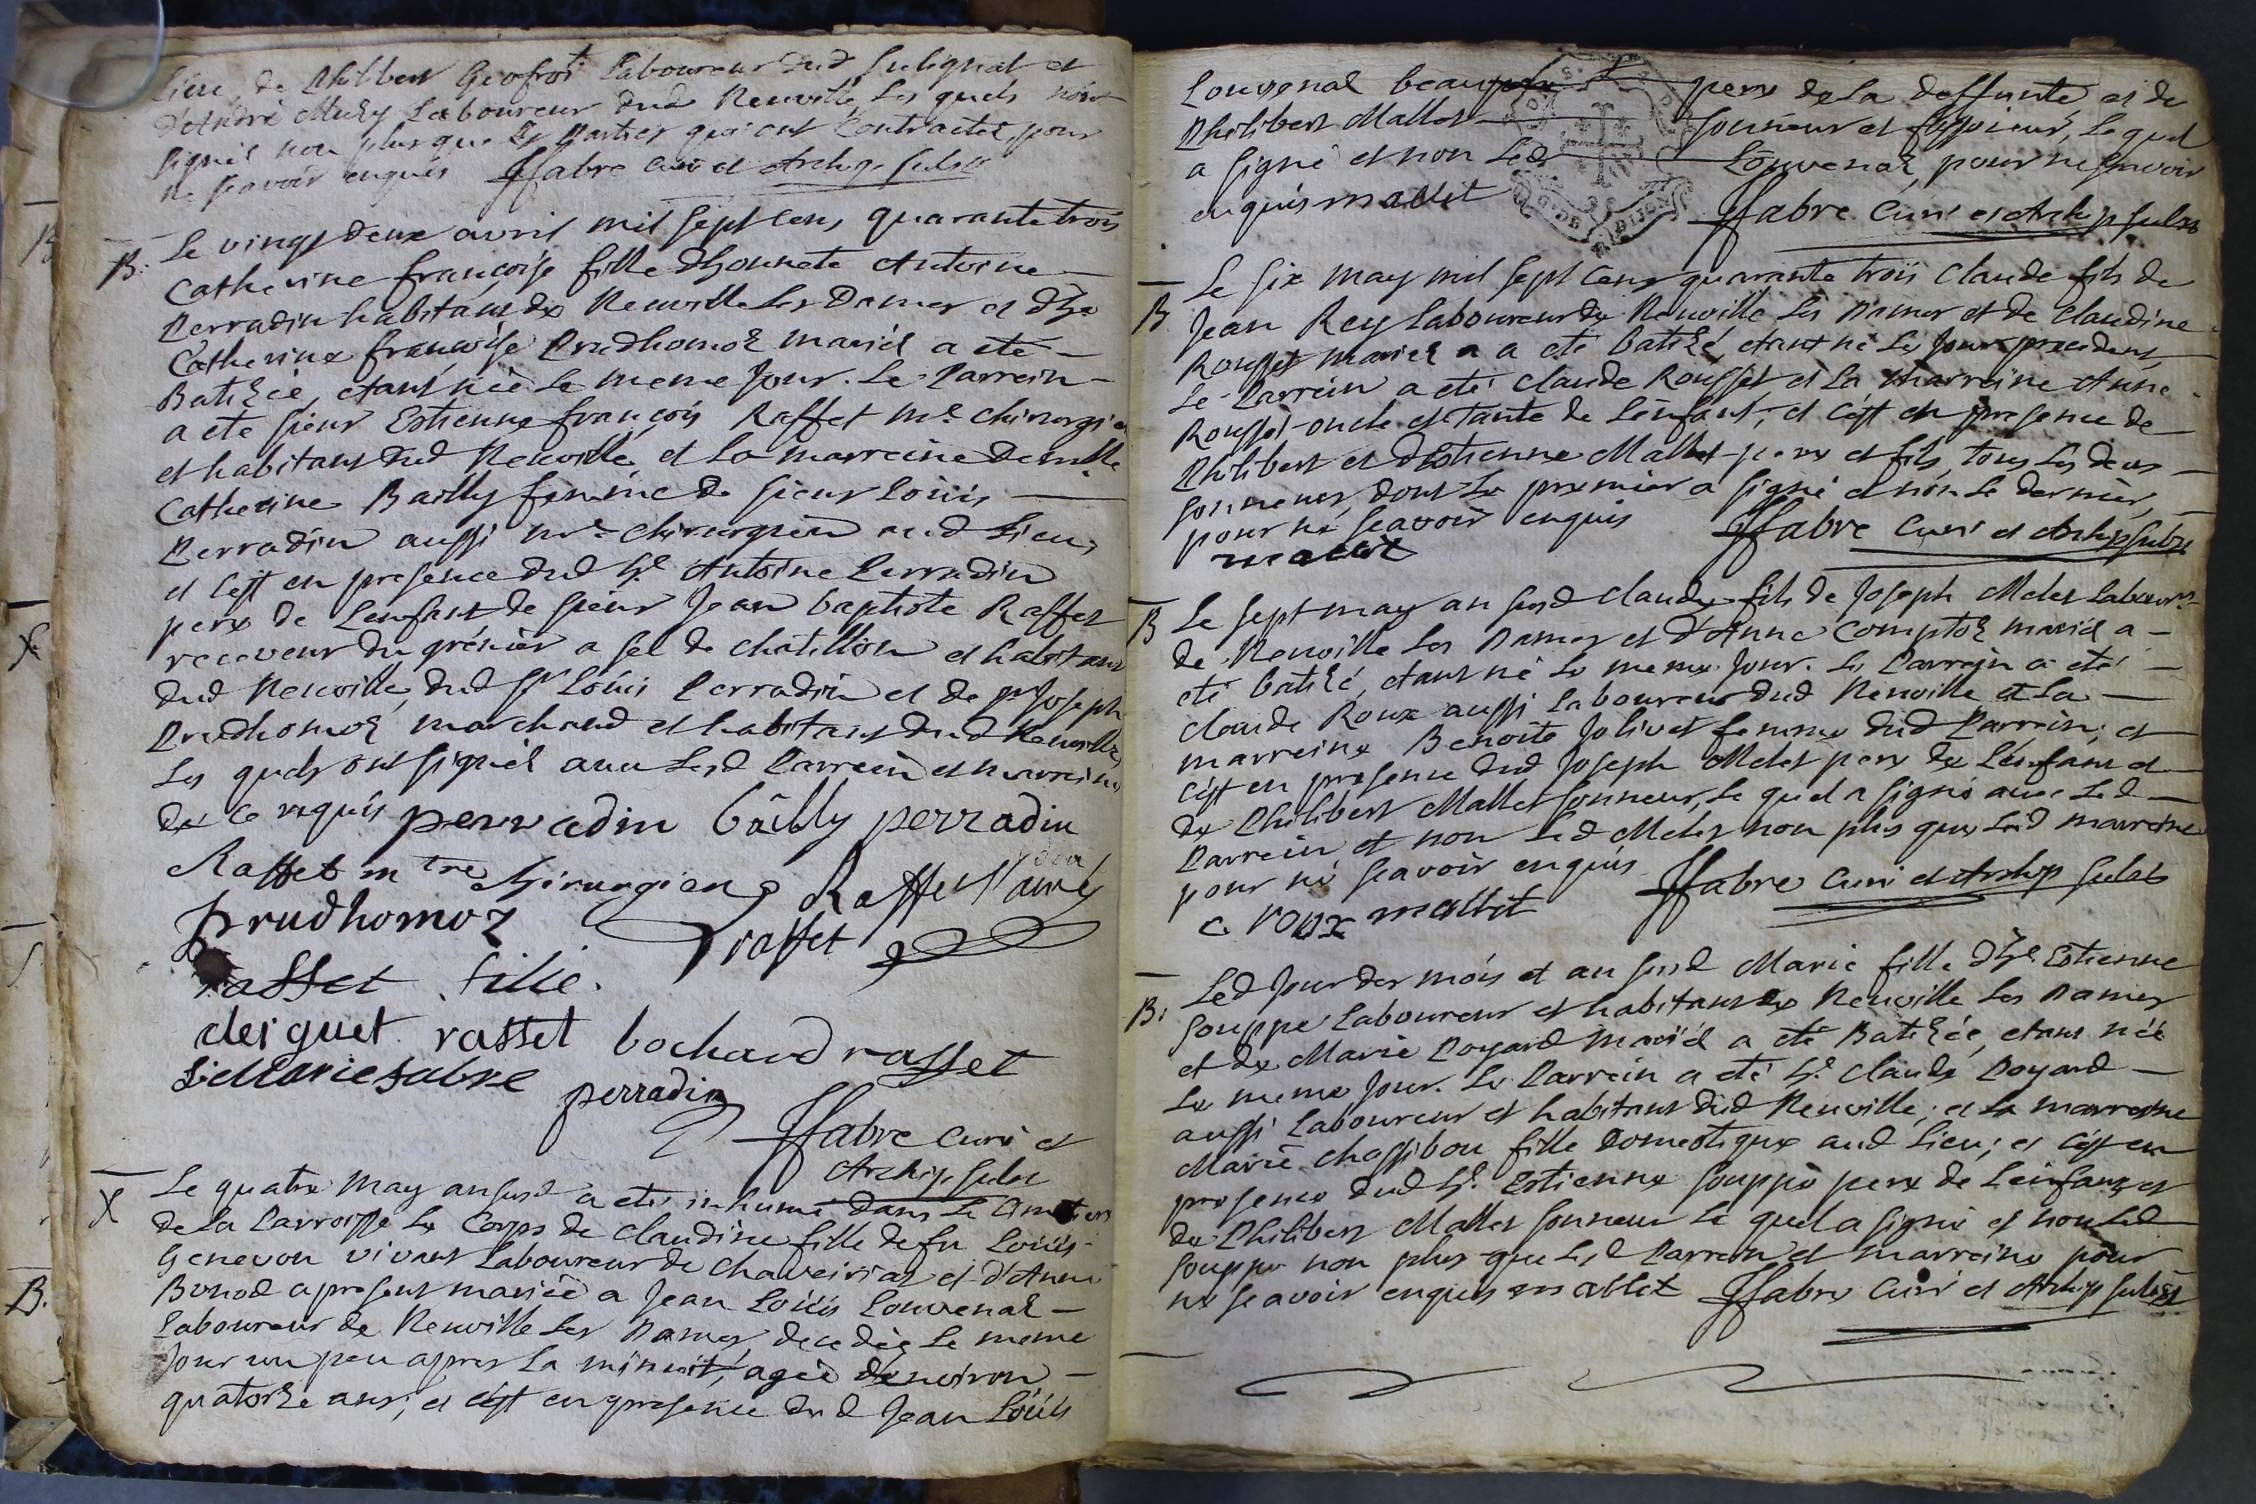 de Philibert Geofroi Laboureur dud Sulignat et
d'André Muzy Laboureur dud Neuville, les quels n'ont
signé non plus que les parties qui ont contracté, pour
ne scavoir enquis JJabre curé et Archip. sulse
B. Le vingt deux avril mil sept cens quarante trois
Catherine françoise fille d'honnete Antoine
Perradin habitant de Neuville les Dames et d'he
Catherine françoise Prudhomoz mariés a eté
Batizée, etant née le meme Jour. Le Parrein
a eté sieur Estienne françois Raffet me. chirurgien
et habitant dud Neuville, et la marreine demlle
Catherine Bailly femme de sieur Loüis
Perradin aussi me. chirurgien aud Lieu,
et c'est en presence dud he. Antoine Perradin
pere de L'enfant de sieur Jean baptiste Raffet
receveur du grénier a sel de chatillon et habitant
dud Neuville, dud sr Loüis Perradin et de sr Joseph
Prudhomoz, marchand et habitant dud Neuville,
Les quels ont signés avec Lesd Parrein et marreine
de ce requis perradin bailly perradin
Raffet mtre chirurgien Raffet l'ainé
prudhomoz raffet
raffet fille.
deiguet rasset bochard raffet
Marie fabre perradin
JJabre curé et
Archip. sulse
X Le quatre May an susd a eté inhumé dans Le Cimetiere
de La Parroisse Le Corps de Claudine fille de fu Loüis
Genevou vivant Laboureur de chaveiriat et d'Anne
Bunod a present mariée a Jean Loüis Louvenaz
Laboureur de Neuville les Dames, decedée Le meme
Jour un peu apres La minuit, agée d'environ
quatorze ans; et c'est en presence dud Jean Loüis
Louvenaz beaupere pere de La deffunte et de
Philibert Mallet sonneur et fossoieur, Le quel
a signé et non Led Louvenaz, pour ne scavoir
enquis mallet JJabre Curé et Archip sulse
G. DE DIJON
B Le six may mil sept cens quarante trois Claude fils de
Jean Rey Laboureur de Neuville les Dames et de Claudine
Rousset mariés a eté batizé, etant né Le Jour precedent
Le Parrein a eté Claude Rousset et La marreine Anne
Rousset oncle et tante de L'enfant, et c'est en presence de
Philibert et d'Estienne Mallet pere et fils, tous Les deux
sonneurs, dont Le premier a signé et non Le dernier,
pour ne scavoir enquis JJabre Curé et Archip sulse
mallet
B Le sept may an susd Claude fils de Joseph Melet Labour.
de Neuville Les Dames et d'Anne Comptoz mariés a
eté batizé, etant né Le meme Jour. Le Parrein a eté
Claude Roux aussi Laboureur dud Neuville et La
marreine Benoite Jolivet femme dud Parrein; et
c'est en presence dud Joseph Melet pere de L'enfant et
de Philibert Mallet sonneur, Le quel a signé avec Led
Parrein et non Led Melet non plus que Lad marreine
pour ne scavoir enquis JJabre Curé et Archip sulse
c roux mallet
B. Led Jour des mois et an susd Marie fille d'he. Estienne
Gouppe Laboureur et habitant de Neuville Les Dames
et de Marie Poyard mariés a eté Batizée, etant née
Le meme Jour. Le Parrein a eté he. Claude Poyard
aussi Laboureur et habitant dud Neuville; et La marreine
Marie Chassibou fille domestique aud Lieu; et c'est en
presence dud he. Estienne Gouppe pere de L'enfant et
de Philibert Mallet sonneur Le quel a signé et non Led
Gouppe non plus que Lesd Parrein et marreine pour
ne scavoir enquis mallet JJabre Curé et Archip sulse